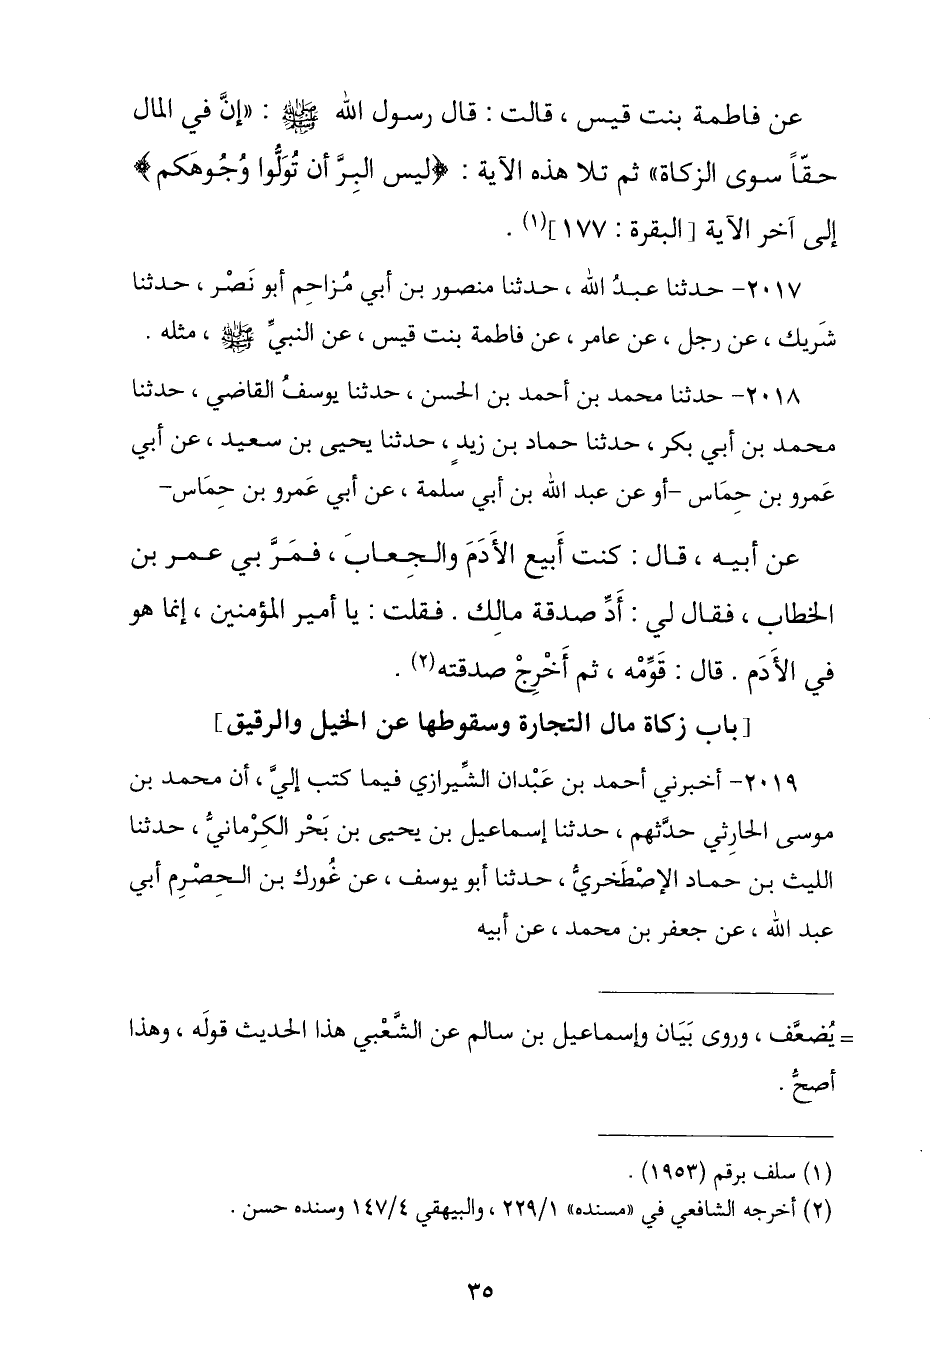 عن فاطمة بنت قيس ، قالت : قال رسول الله ﷺ : «إنَّ في المال
حقّاً سوى الزكاة» ثم تلا هذه الآية : ﴿ليس البرَّ أن تُوَلُّوا وُجُوهَكم﴾
إلى آخر الآية [البقرة : ١٧٧](١) .
٢٠١٧- حدثنا عبدُ الله ، حدثنا منصور بن أبي مُزاحِم أبو نَصْر ، حدثنا
شَريك ، عن رجل ، عن عامر ، عن فاطمة بنت قيس ، عن النبيِّ ﷺ ، مثله .
٢٠١٨- حدثنا محمد بن أحمد بن الحسن ، حدثنا يوسفُ القاضي ، حدثنا
محمد بن أبي بكر ، حدثنا حماد بن زيدٍ ، حدثنا يحيى بن سعيد ، عن أبي
عَمرو بن حِمَاس -أو عن عبد الله بن أبي سلمة ، عن أبي عَمرو بن حِمَاس-
عن أبيه ، قال : كنت أَبيع الأَدَمَ والجِعابَ ، فمَرَّ بي عمر بن
الخطاب ، فقال لي : أَدِّ صدقة مالِك . فقلت : يا أمير المؤمنين ، إنما هو
في الأَدَم . قال : قَوِّمْه ، ثم أَخْرِجْ صدقته(٢) .
[باب زكاة مال التجارة وسقوطها عن الخيل والرقيق]
٢٠١٩- أخبرني أحمد بن عَبْدان الشِّيرازي فيما كتب إليَّ ، أن محمد بن
موسى الحارِثي حدَّثهم ، حدثنا إسماعيل بن يحيى بن بَحْر الكِرْمانيُّ ، حدثنا
الليث بن حماد الإصْطَخريُّ ، حدثنا أبو يوسف ، عن غُورك بن الحِصْرِم أبي
عبد الله ، عن جعفر بن محمد ، عن أبيه
= يُضعَّف ، وروى بَيَان وإسماعيل بن سالم عن الشَّعْبي هذا الحديث قولَه ، وهذا
أصحُّ .
(١) سلف برقم (١٩٥٣) .
(٢) أخرجه الشافعي في «مسنده» ٢٢٩/١ ، والبيهقي ١٤٧/٤ وسنده حسن .
٣٥